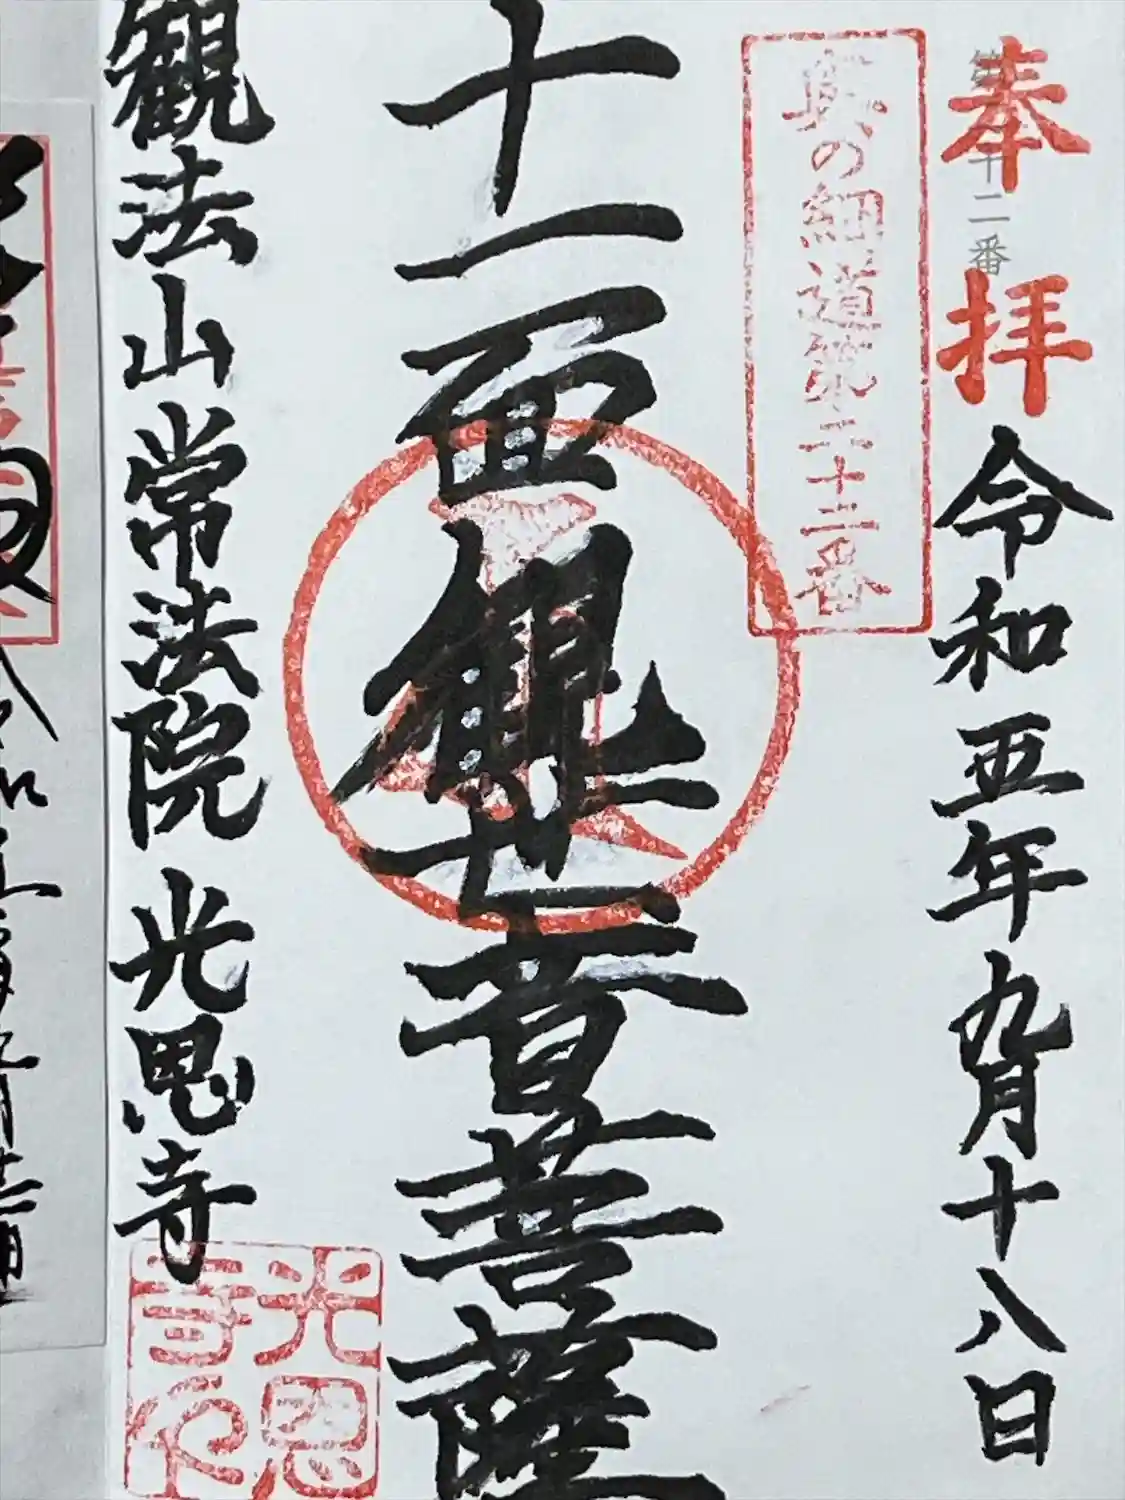 奉拝
令和五年九月十八日
奥の細道第二十二番
十一面観世音菩薩
観法山常法院 光恩寺
光恩